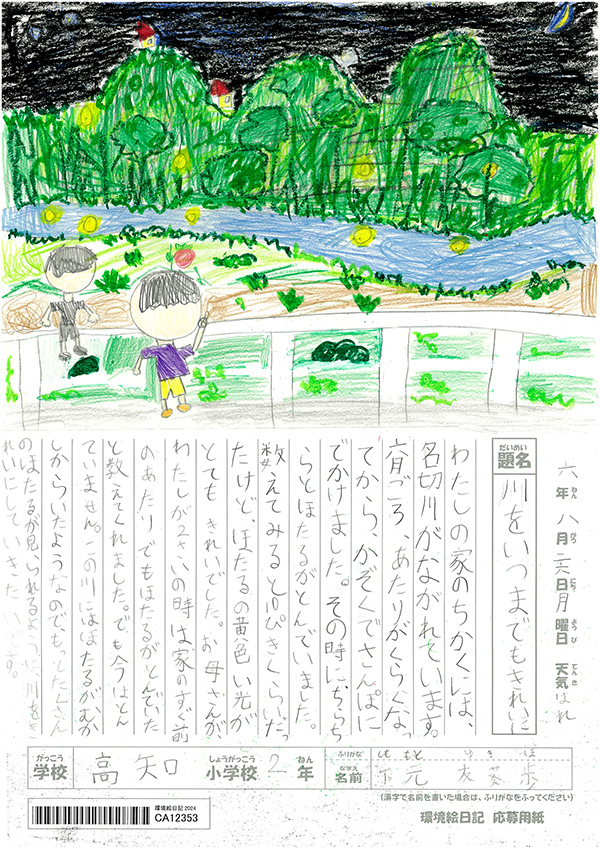 六年 八月 二六日 月曜日 天気 はれ
ねん がつ にち ようび てんき
だいめい
題名 川をいつまでもきれいに
わたしの家のちかくには、
名切川がながれています。
六月ごろ、あたりがくらくなっ
てから、かぞくでさんぽに
でかけました。その時に、ちらち
らとほたるがとんでいました。
数えてみると10ぴきくらいだっ
たけど、ほたるの黄色い光が
とてもきれいでした。お母さんが
わたしが2さいの時は家のすぐ前
のあたりでもほたるがとんでいた
と教えてくれました。でも今はとん
でいません。この川にはほたるがむか
しからいたようなのでもっとたくさん
のほたるが見られるように川をき
れいにしていきたいです。
がっこう しょうがっこう ねん ふりがな しももと ゆきほ
学校 高知 小学校 2 年 なまえ 名前 下元 友葵歩
(漢字で名前を書いた場合は、ふりがなをふってください)
環境絵日記 2024
CA12353
環境絵日記 応募用紙